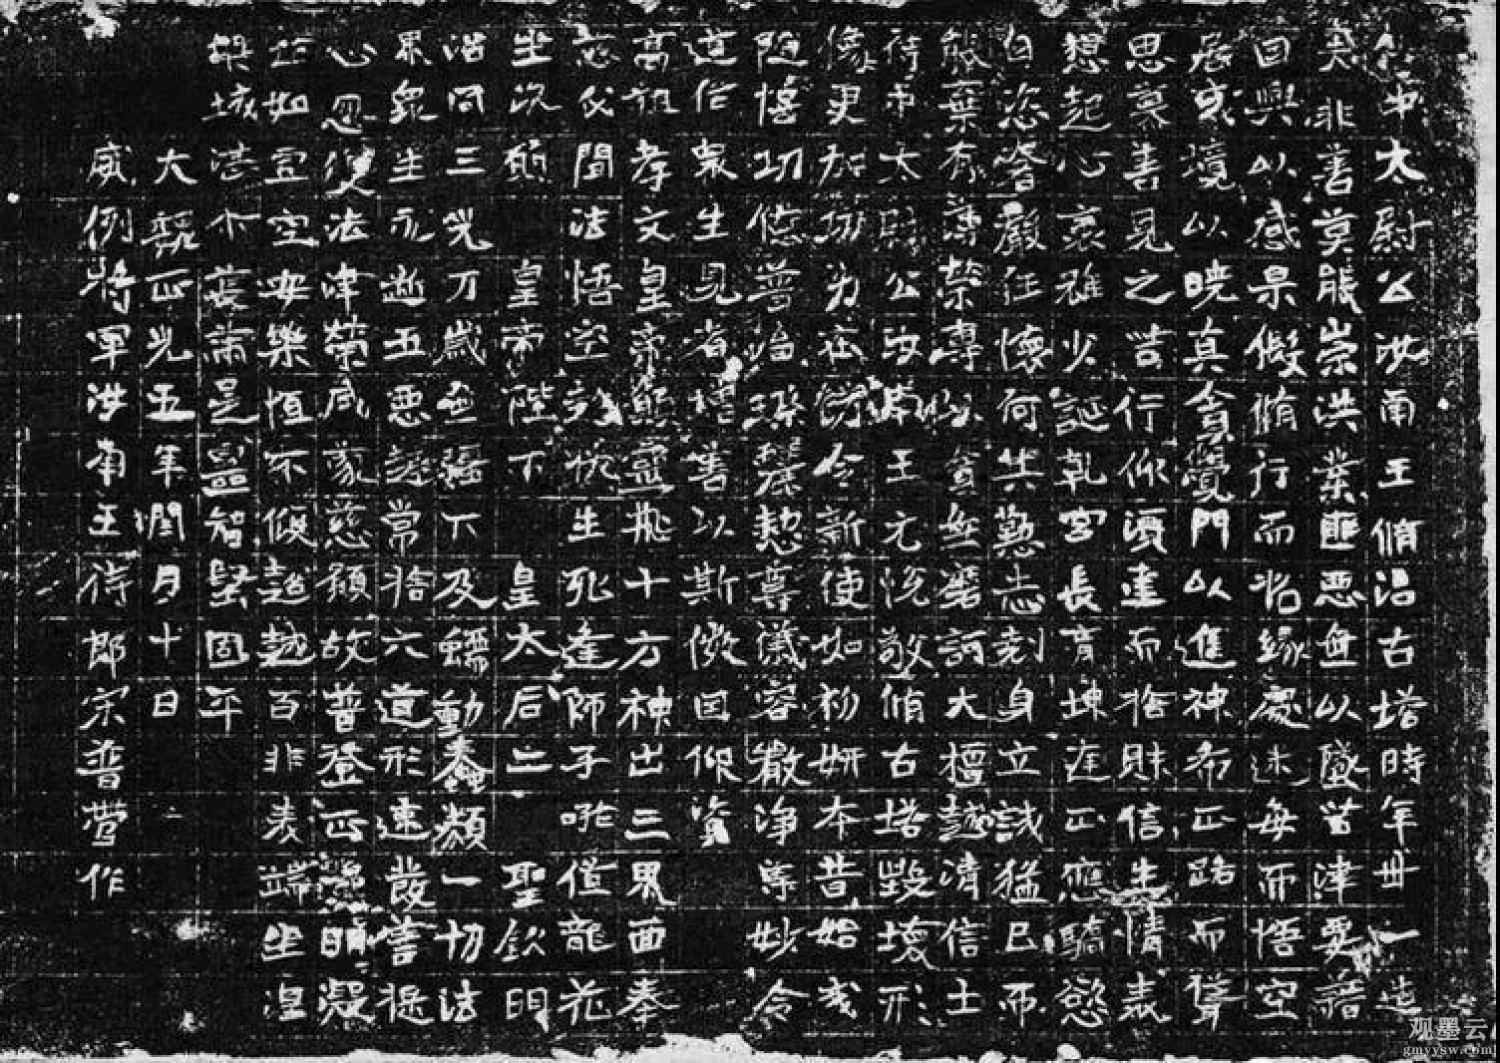 侍中太尉公汝南王脩治古塔時年卅一造
夫非善莫能崇洪業匪惡無以盛苦津要藉
因興以感果假脩行而始緣處迷每而悟空
居或境以曉真貪覺門以進神希正路而聲
思慕善見之苦行仰須達而捨財信生情表
想起心裏雖少誕乾宮長育埭進正應驕慾
自恣奢嚴任懷何共懃志剋身立誠猛已而
能棄蕃榮專貧無磨訶大檀越清信士
侍中太尉公汝南王元悅敬脩古塔毀壞形
像更加功力莊餝令新使如初妍本昔始成
陋舊功德普治璨麗懃尊儀容嚴淨尊妙令
道俗衆生見者增善以斯微因仰資
高祖孝文皇帝熊靈飛十方神出三界面奉
慈氏聞法悟空悅生死逢師子吼值龍花
坐次願 皇帝陛下 皇太后二聖欽明
治同三光万歲無彊下及蠕動蠢類一切法
界衆生永逝五惡常捨六道形速發菩提
心忽從法津榮咸蒙慈願故普登正覺明凝
如宜空安樂恒不傾超越百非表端坐涅
槃城湛不論是智堅固平
大魏正光五年閏月十日
威例將軍汝南王侍郎宋普營作
观墨云
gmyysw.com